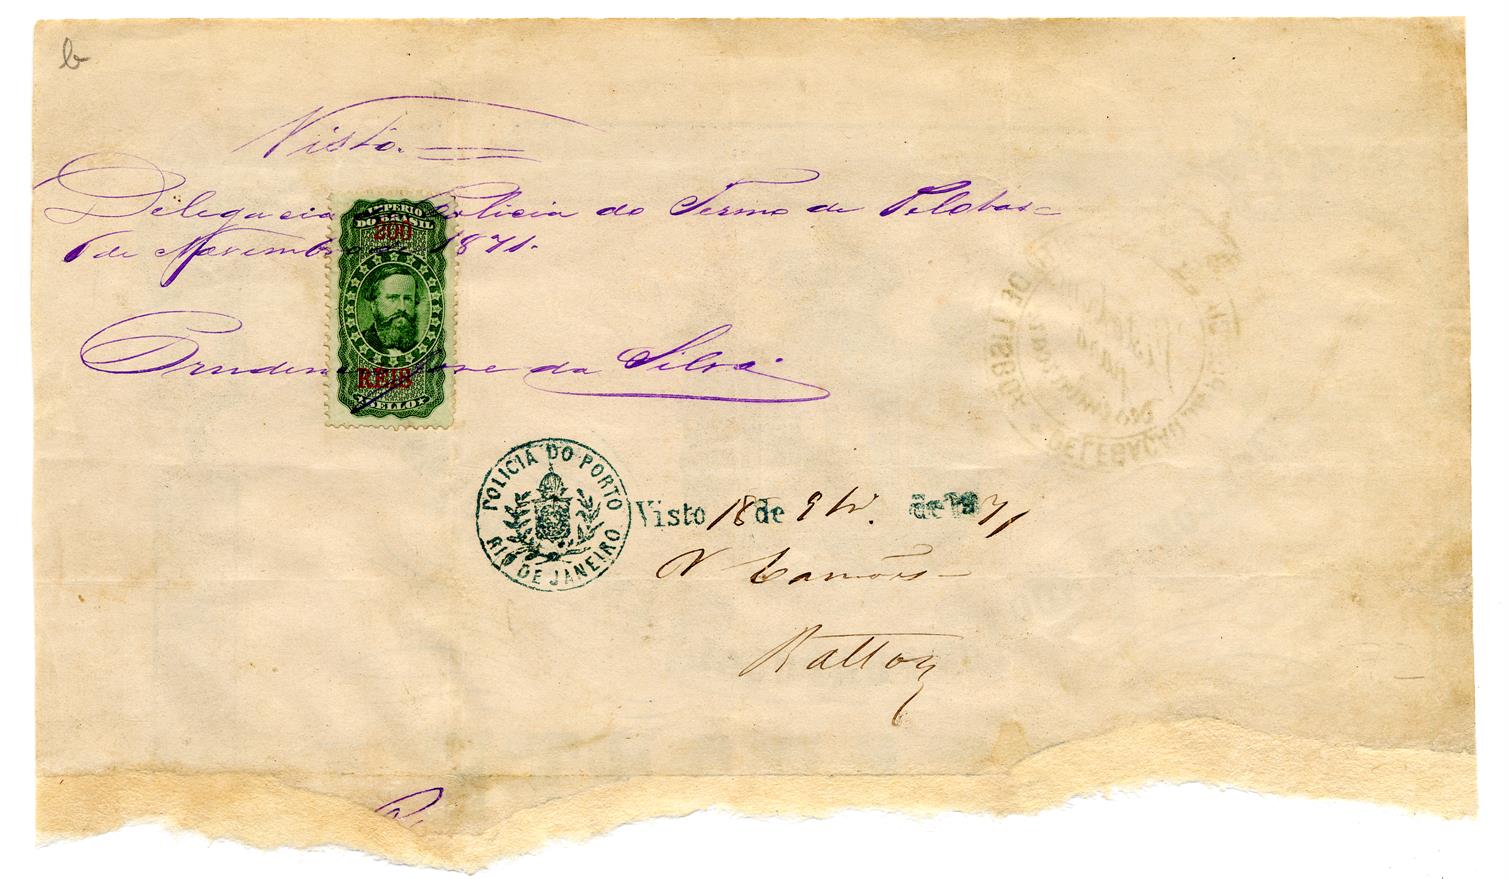 b
Visto.
Delegacia Policia do Termo de Pelotas
6 de Novembro 1871.
IMPERIO
DO BRASIL
200
REIS
SELLO
da Silva
POLICIA DO PORTO
RIO DE JANEIRO
Visto 18 de 9br. de 1871
N Camões
DELEGAÇÃO
DE LISBOA